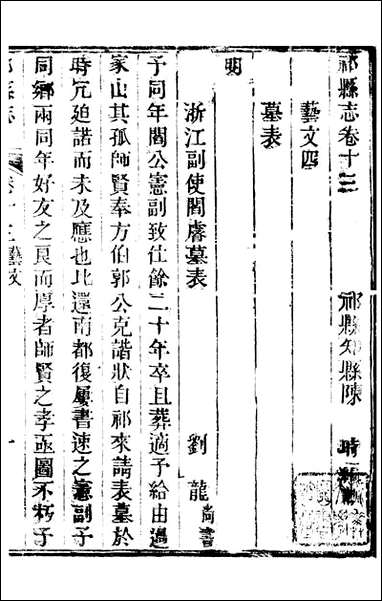 祁縣志卷十三 祁縣知縣陳 時
藝文四
墓表
明
浙江副使閻睿墓表 劉龍尚書
予同年閻公憲副致仕餘二十年卒且葬適予給由過
家山其孤師賢奉方伯郭公克諧狀自祁來請表墓於
時宂迫諾而未及應也比還南都復屢書速之憲副子
同鄉兩同年好友之良而厚者師賢之孝亟圖不朽子
祁縣志 卷十三藝文 一